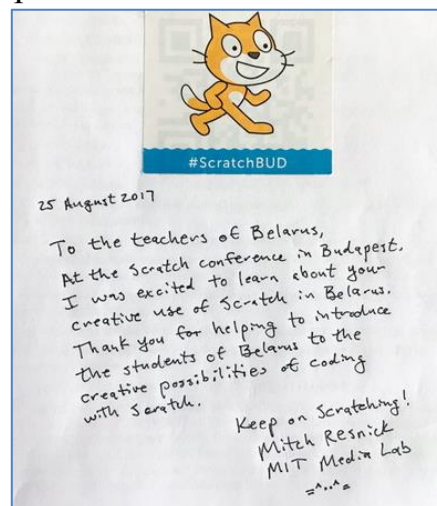 #ScratchBUD
25 August 2017
To the teachers of Belarus,
At the Scratch conference in Budapest,
I was excited to learn about your
creative use of Scratch in Belarus.
Thank you for helping to introduce
the students of Belarus to the
creative possibilities of coding
with Scratch.
Keep on Scratching!
Mitch Resnick
MIT Media Lab
=^..^=